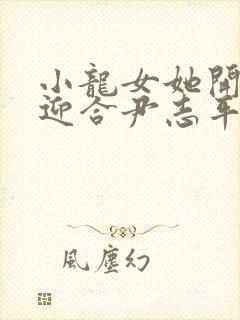 小龍女她開
迎合尹志平
風塵幻